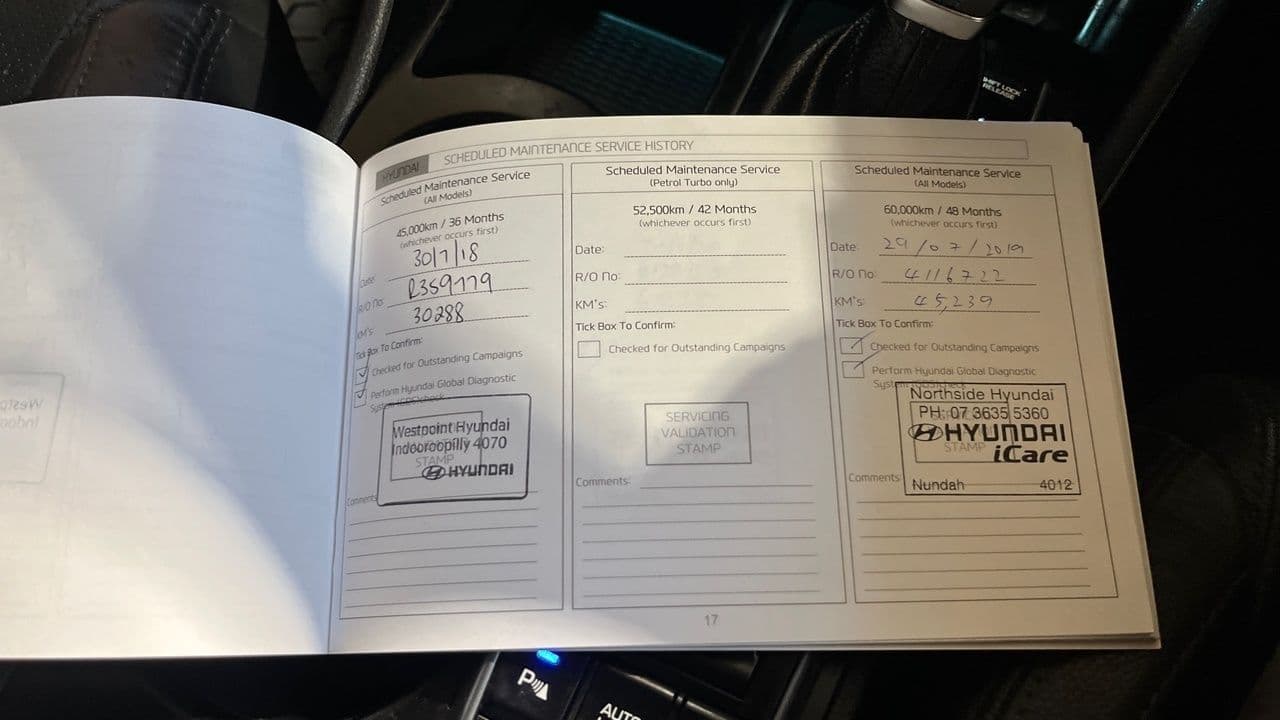 SHIFT LOCK
RELEASE
HYUNDAI SCHEDULED MAINTENANCE SERVICE HISTORY
Scheduled Maintenance Service
(All Models)
45,000km / 36 Months
(whichever occurs first)
Date: 30/7/18
R/O No: R359779
KM's: 30288
Tick Box To Confirm:
Checked for Outstanding Campaigns
Perform Hyundai Global Diagnostic
System (GDS) check
Westpoint Hyundai
Indooroopilly 4070
STAMP
HYUNDAI
Comments:
Scheduled Maintenance Service
(Petrol Turbo only)
52,500km / 42 Months
(whichever occurs first)
Date:
R/O No:
KM's:
Tick Box To Confirm:
Checked for Outstanding Campaigns
SERVICING
VALIDATION
STAMP
Comments:
Scheduled Maintenance Service
(All Models)
60,000km / 48 Months
(whichever occurs first)
Date: 29/07/2019
R/O No: 4116722
KM's: 45,239
Tick Box To Confirm:
Checked for Outstanding Campaigns
Perform Hyundai Global Diagnostic
System (GDS) check
Northside Hyundai
PH: 07 3635 5360
HYUNDAI
STAMP
iCare
Nundah 4012
Comments:
17
P
AUTO